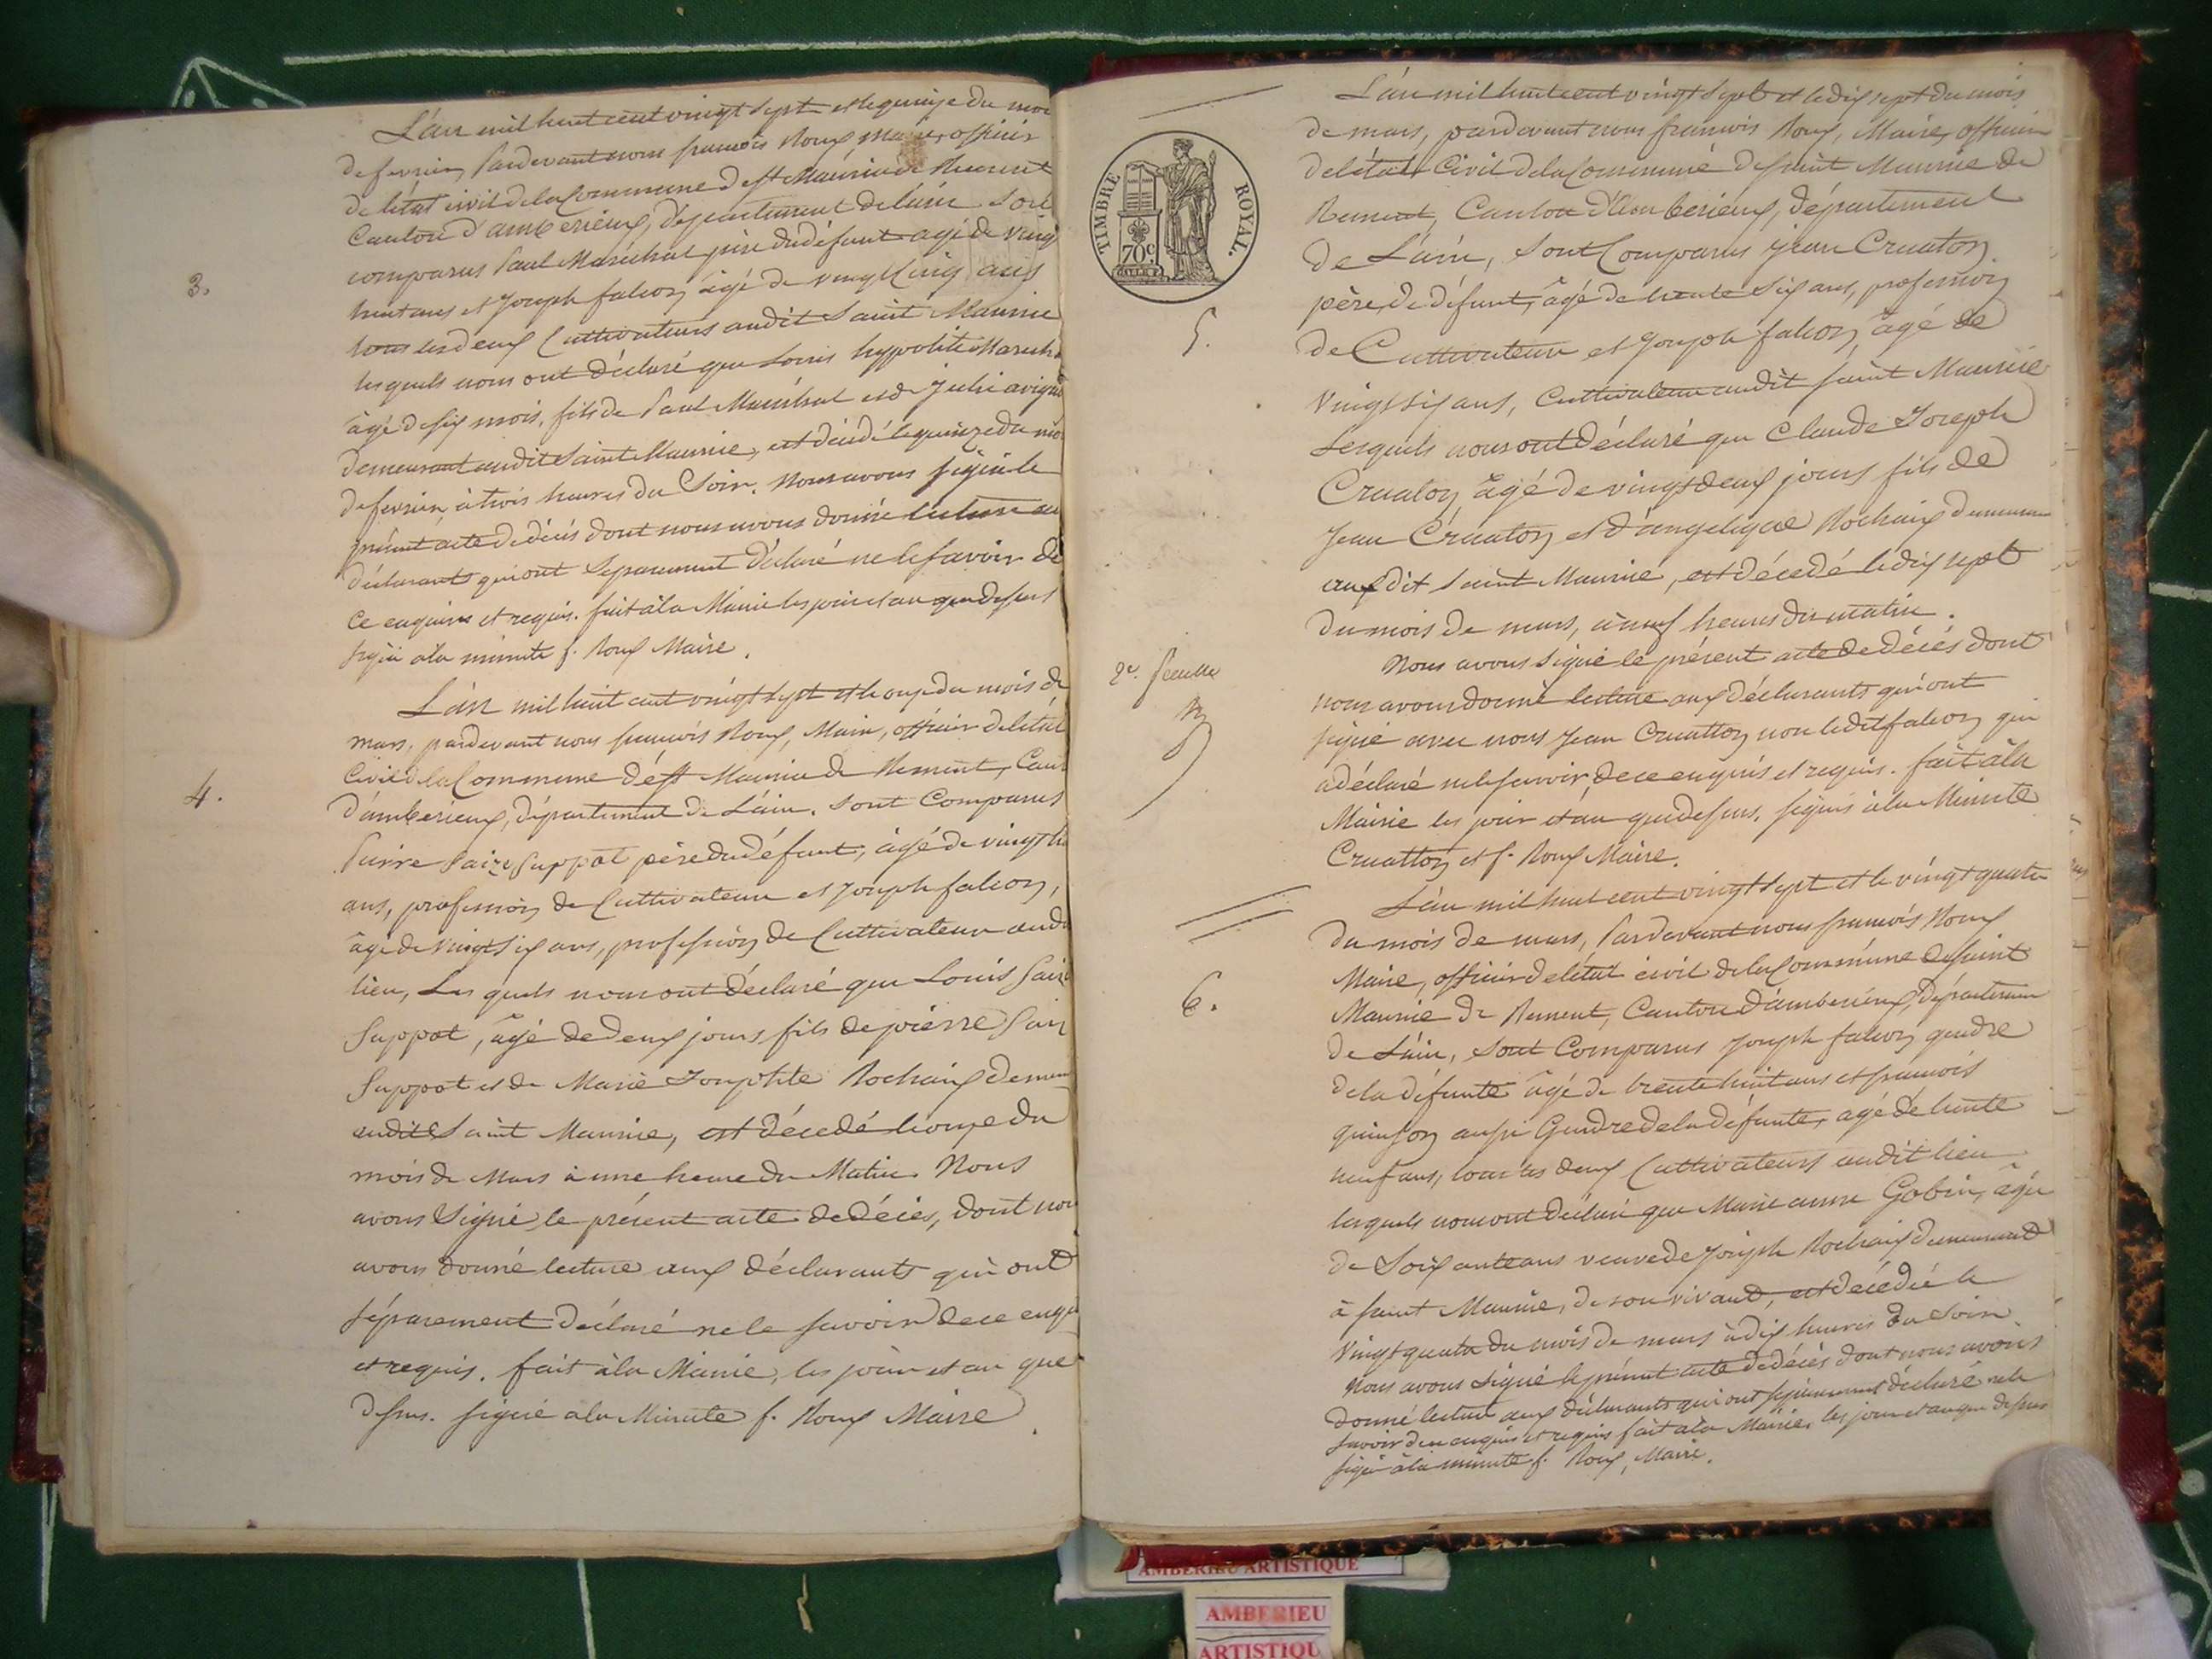 L'an mil huit cent vingt sept et le quinze du moi
de fevrier, Pardevant nous françois Roux Maire, officier
de létat civil de la Commune de St Maurice de Rement
Canton d'amberieux, département de lain sont
comparus Paul Maréchal père du défunt agé de vingt
huit ans et Joseph falcoz âgé de vingt cinq ans
tous les deux Cultivateurs audit Saint Maurice
3.
lesquels nous ont déclaré que Louis hyppolite Marecha
âgé de six mois, fils de Paul Maréchal et de Julie
demeurant audit Saint Maurice, est décédé le quinze du moi
de fevrier, à trois heures du Soir. Nous avons signé le
présent acte de décès dont nous avons donné lecture au
déclarants qui ont séparement déclaré ne le savoir de
ce enquires et requis. fait à la Mairie les jour et an que dessus
signé a la minute f. Roux Maire.
L'an mil huit cent vingt sept et le onze du mois de
mars, pardevant nous françois Roux, Maire, officier de létat
Civil de la Commune de St Maurice de Rement, Can
4.
d'amberieux, département de L'ain. sont Comparus
Pierre Suppot père du défunt, âgé de vingt
ans, profession de Cultivateur et Joseph falcoz,
âgé de vingt six ans, profession de Cultivateur aud
lieu, Les quels nous ont déclaré que Louis
Suppot, âgé de deux jours fils de pierre
Suppot et de Marie Josephte Rochaix demeu
audit Saint Maurice, est décédé le onze du
mois de Mars à une heure du Matin. Nous
avons Signé le présent acte de décès, dont nou
avons donné lecture aux déclarants qui ont
séparement déclaré ne le savoir de ce enqu
et requis. fait à la Mairie, les jour et an que
dessus. signé a la Minute f. Roux Maire.
L'an mil huit cent vingt sept et le dix sept du mois
de mars, pardevant nous francois Roux, Maire, officier
de létat Civil de la Commune de saint Maurice de
Rement, Canton d'Amberieux, département
TIMBRE ROYAL.
70c
de L'ain, sont Comparus Jean Cruaton.
père de défunt, âgé de trente six ans, profession
5.
de Cultivateur et Joseph falcoz, âgé de
vingt six ans, Cultivateur audit saint Maurice
Lesquels nous ont déclaré que Claude Joseph
Cruatoz âgé de vingt deux jours fils de
Jean Cruatoz et d'angelique Rochaix demeurant
aux dit saint Maurice, est décedé le dix sept
du mois de mars, à neuf heures du matin.
2e. feuille
Nous avons signé le présent acte de décés dont
nous avons donné lecture aux déclarants qui ont
signé avec nous Jean Cruattoz non ledit falcoz qui
a déclaré ne le savoir, de ce enquis et requis. fait à la
Mairie les jour et an que dessus. signés à la Minute
Cruattoz et f. Roux Maire.
L'an mil huit cent vingt sept et le vingt quatre
du mois de mars, Pardevant nous francois Roux
Maire, officier de létat civil de la Commune de saint
6.
Maurice de Rement, Canton d'amberieux, département
de L'ain, sont Comparus Joseph falcoz gendre
de la défunte âgé de trente huit ans et francois
quinson aussi Gendre de la défunte, agé de trente
neuf ans, tous les deux Cultivateurs audit lieu
lesquels nous ont déclaré que Marie anne Gobin, âgée
de Soixante ans veuve de Joseph Rochaix demeurant
à saint Maurice, de son vivant, est décedée le
vingt quatre du mois de mars à dix heures du Soir.
Nous avons signé le présent acte de décès dont nous avons
donné lecture aux déclarants qui ont séparement déclaré ne le
savoir de ce enquis et requis fait a la Mairie, les jour et an que dessus
signé à la minute f. Roux, Maire.
AMBERIEU ARTISTIQUE
AMBERIEU
ARTISTIQU